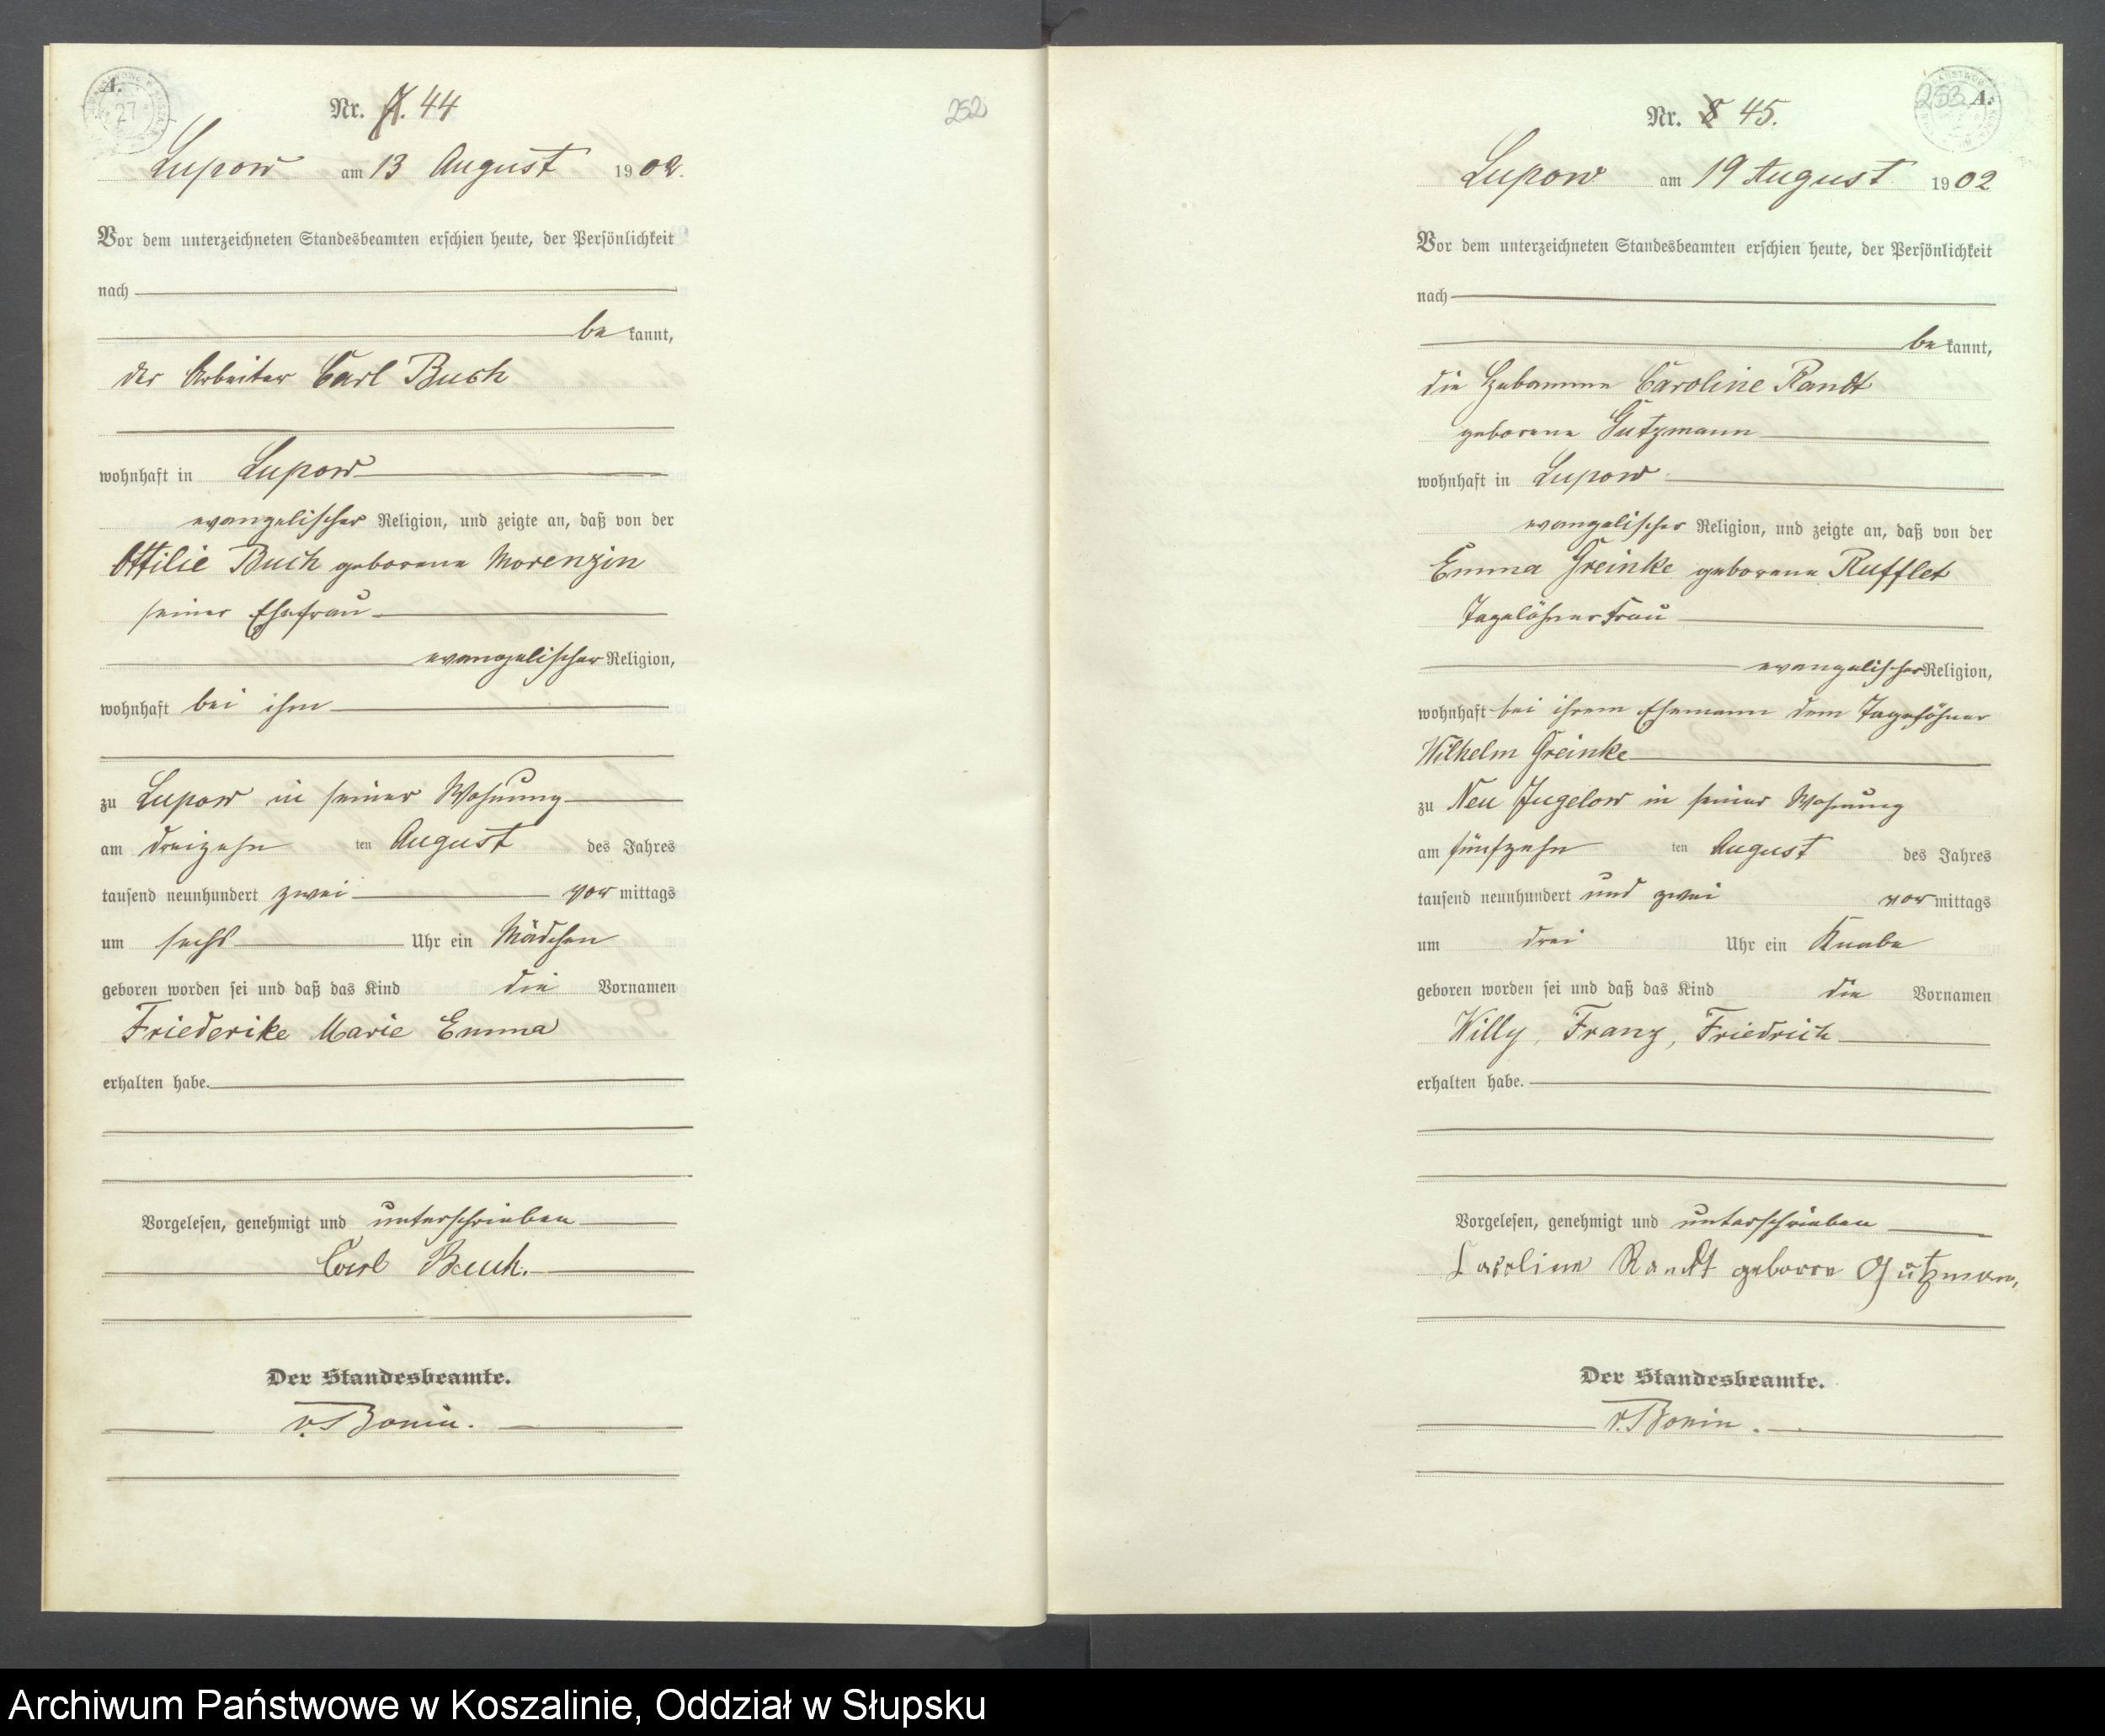 A.
27
Nr. 44
252
Lupow am 13 August 1902.
Vor dem unterzeichneten Standesbeamten erschien heute, der Persönlichkeit
nach
be kannt,
der Arbeiter Carl Buch
wohnhaft in Lupow
evangelischer Religion, und zeigte an, daß von der
Ottilie Buch geborene Morenzin
seiner Ehefrau
evangelischer Religion,
wohnhaft bei ihm
zu Lupow in seiner Wohnung
am dreizehn ten August des Jahres
tausend neunhundert zwei vor mittags
um sechs Uhr ein Mädchen
geboren worden sei und daß das Kind die Vornamen
Friederike Marie Emma
erhalten habe.
Vorgelesen, genehmigt und unterschrieben
Carl Buch.
Der Standesbeamte.
v. Bonin.
253 A.
Nr. 8 45.
Lupow am 19 August 1902
Vor dem unterzeichneten Standesbeamten erschien heute, der Persönlichkeit
nach
be kannt,
die Hebamme Caroline Randt
geborene Gutzmann
wohnhaft in Lupow
evangelischer Religion, und zeigte an, daß von der
Emma Greinke geborene Rufflet
Tagelöhnerfrau
evangelischer Religion,
wohnhaft bei ihrem Ehemann dem Tagelöhner
Wilhelm Greinke
zu Neu Jugelow in seiner Wohnung
am fünfzehn ten August des Jahres
tausend neunhundert und zwei vor mittags
um drei Uhr ein Knabe
geboren worden sei und daß das Kind die Vornamen
Willy, Franz, Friedrich
erhalten habe.
Vorgelesen, genehmigt und unterschrieben
Caroline Randt geborre Gützman,
Der Standesbeamte.
v. Bonin.
Archiwum Państwowe w Koszalinie, Oddział w Słupsku